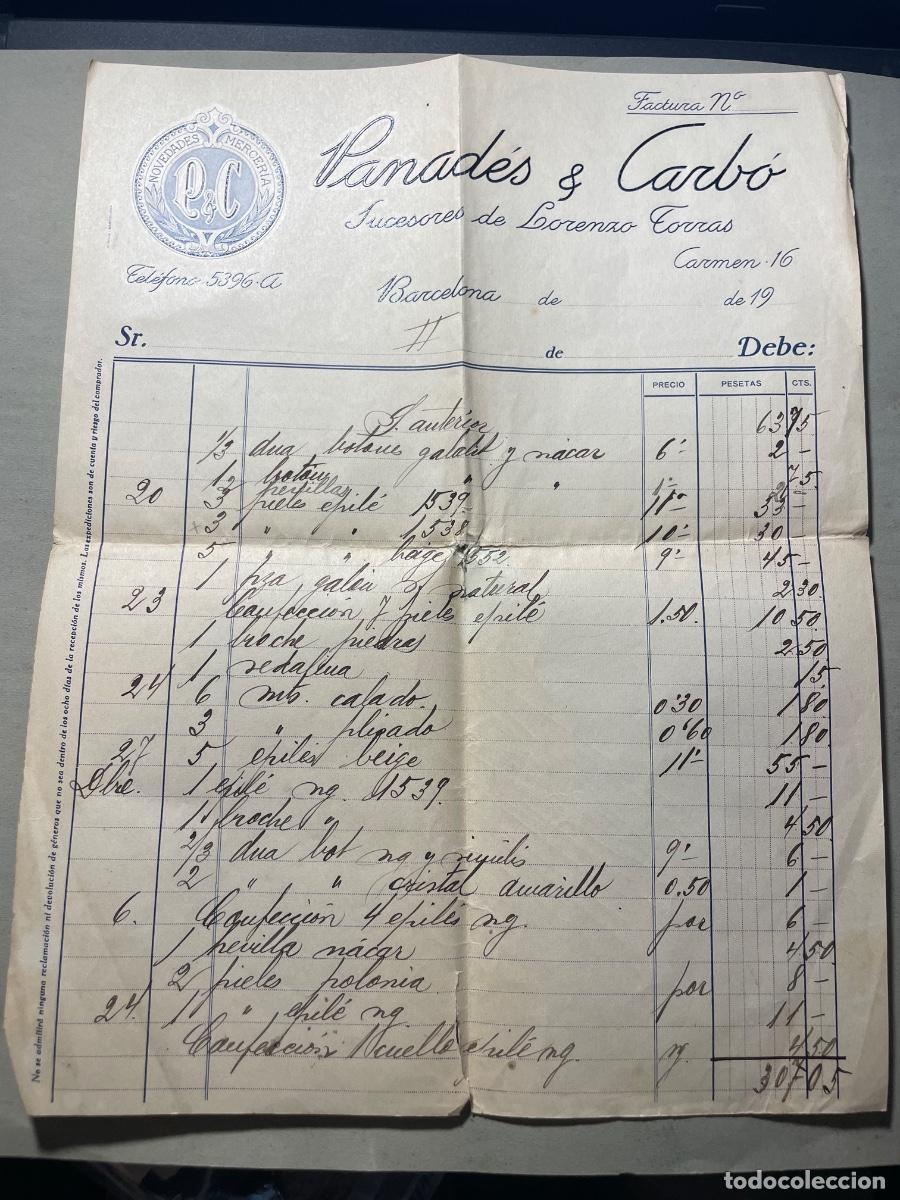 Factura Nº
NOVEDADES MERCERIA
P&C
Panadés & Carbó
Sucesores de Lorenzo Torras
Carmen·16
Teléfono 5396·A
Barcelona de de 19
Sr. II de Debe:
PRECIO PESETAS CTS.
S. anterior 63 75
1/3 dna botones galalit y nácar 6'- 2 -
1/2 botón " " 1'- 75
20 3 pieles epilé 1539 11'- 33 -
3 " " 1538 10'- 30 -
5 " " beige 1552 9'- 45 -
1 pza galón natural 2 30
23 Confección 7 pieles epilé 1.50 10 50
1 broche piedras 2 50
1 sedalina 15
24 6 mts. calado 0'30 1 80
3 " plicado 0'60 1 80
27 5 epilés beige 11'- 55 -
Dbre. 1 epilé ng. 1539 11 -
1 broche " 4 50
2/3 dna bot ng y 9'- 6 -
2 " " cristal amarillo 0.50 1 -
6. Confección 4 epilés ng. por 6 -
1 hevilla nácar 4 50
2 pieles polonia por 8 -
24 1 " epilé ng 11 -
Confección 1 cuello epilé ng. 4 50
307 05
No se admitirá ninguna reclamación ni devolución de géneros que no sea dentro de los ocho días de la recepción de los mismos. Las expediciones son de cuenta y riesgo del comprador.
todocoleccion